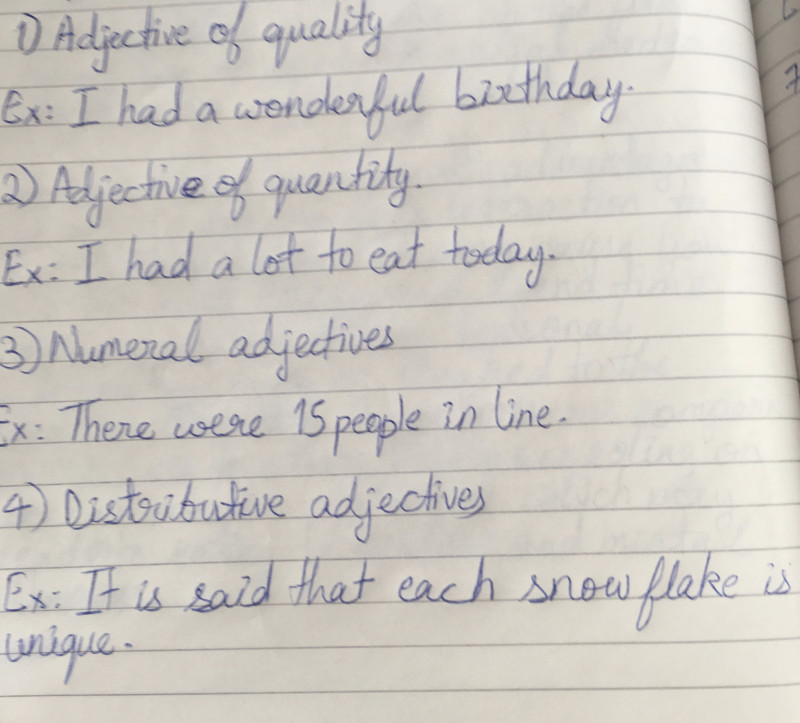 1) Adjective of quality
Ex: I had a wonderful birthday.
2) Adjective of quantity.
Ex: I had a lot to eat today.
3) Numeral adjectives
Ex: There were 15 people in line.
4) Distributive adjectives
Ex: It is said that each snowflake is
unique.